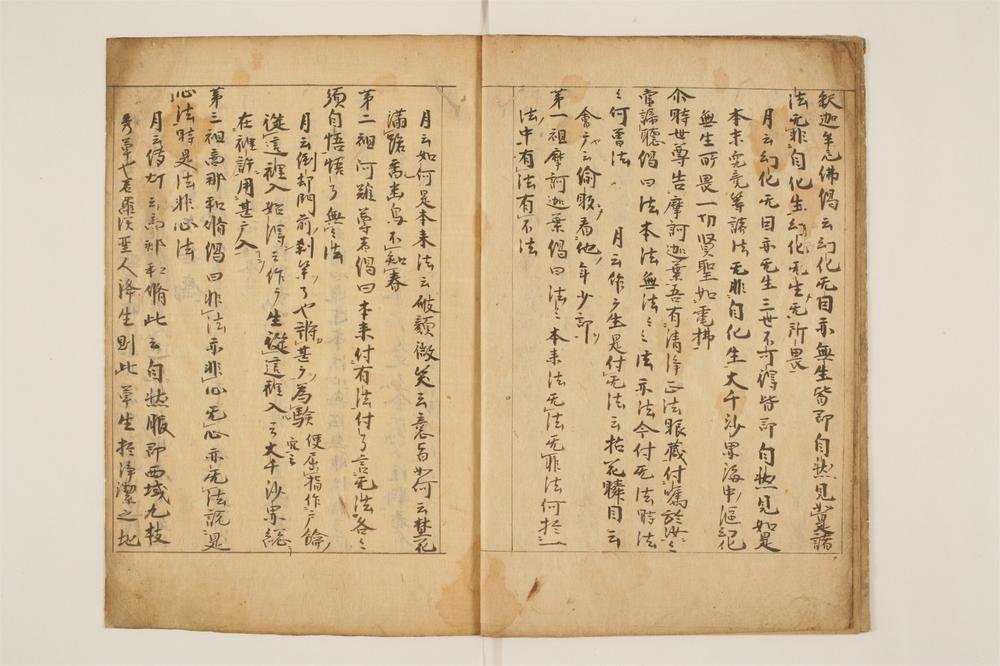 釈迦牟尼佛偈云幻化无因亦無生皆即自然見如是諸
法无非自化生幻化无生无所畏
月云幻化无因亦无生三世不可得皆即自然見如是
本末究竟等諸法无非自化生大千沙界海中漚幻化
無生所畏一切賢聖如電拂
尒時世尊告摩訶迦葉吾有清淨正法眼藏付囑於汝々
當諦聽偈曰法本法無法々々法亦法今付无法時法
々何曽法
月云作广生是付无法云拈花瞬目云
會广云偷眼看他年少郎
第一祖摩訶迦葉偈曰法々本来法无法无非法何於一
法中有法有不法
月云如何是本来法云破顔微笑云意旨如何云焚花
滿路香幽鳥不知春
第二祖阿難尊者偈曰本来付有法付了言无法各々
須自悟悟了無々法
月云倒却門前刹竿了也將甚广為驗便屈指作广
從這裡入始得云作广生從這裡入云大千沙界総
在裡許用甚广入
第三祖商那和脩偈曰非法亦非心无心亦无法説是
心法時是法非心法
月云傳灯云商那和脩此云自然服即西域九枝
秀草也若羅漢聖人降生則此草生於淨潔之地